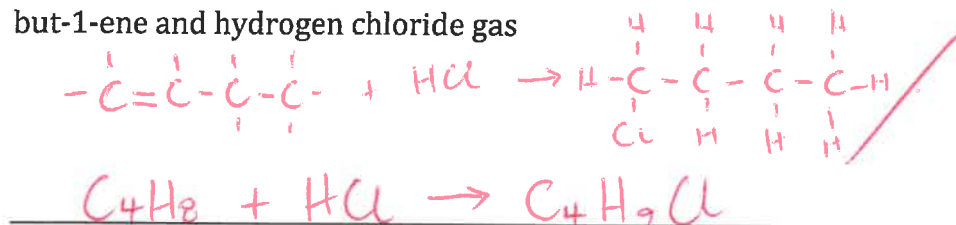 but-1-ene and hydrogen chloride gas
H H H H
-C=C-C-C- + HCl → H-C-C-C-C-H
Cl H H H
C4H8 + HCl → C4H9Cl